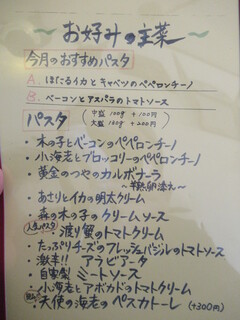 ～お好みの主菜～
今月のおすすめパスタ
A. ほたるイカとキャベツのペペロンチーノ
B. ベーコンとアスパラのトマトソース
パスタ (中盛 100g +100円
大盛 160g +200円)
・木の子とベーコンのペペロンチーノ
・小海老とブロッコリーのペペロンチーノ
・黄金のつやのカルボナーラ
～半熟卵添え～
・あさりとイカの明太クリーム
・森の木の子のクリームソース
人気パスタ
・渡り蟹のトマトクリーム
・たっぷりチーズのフレッシュバジルのトマトソース
・激辛!! アラビアータ
・自家製 ミートソース
・小海老とアボカドのトマトクリーム
・天使の海老のペスカトーレ (+300円)